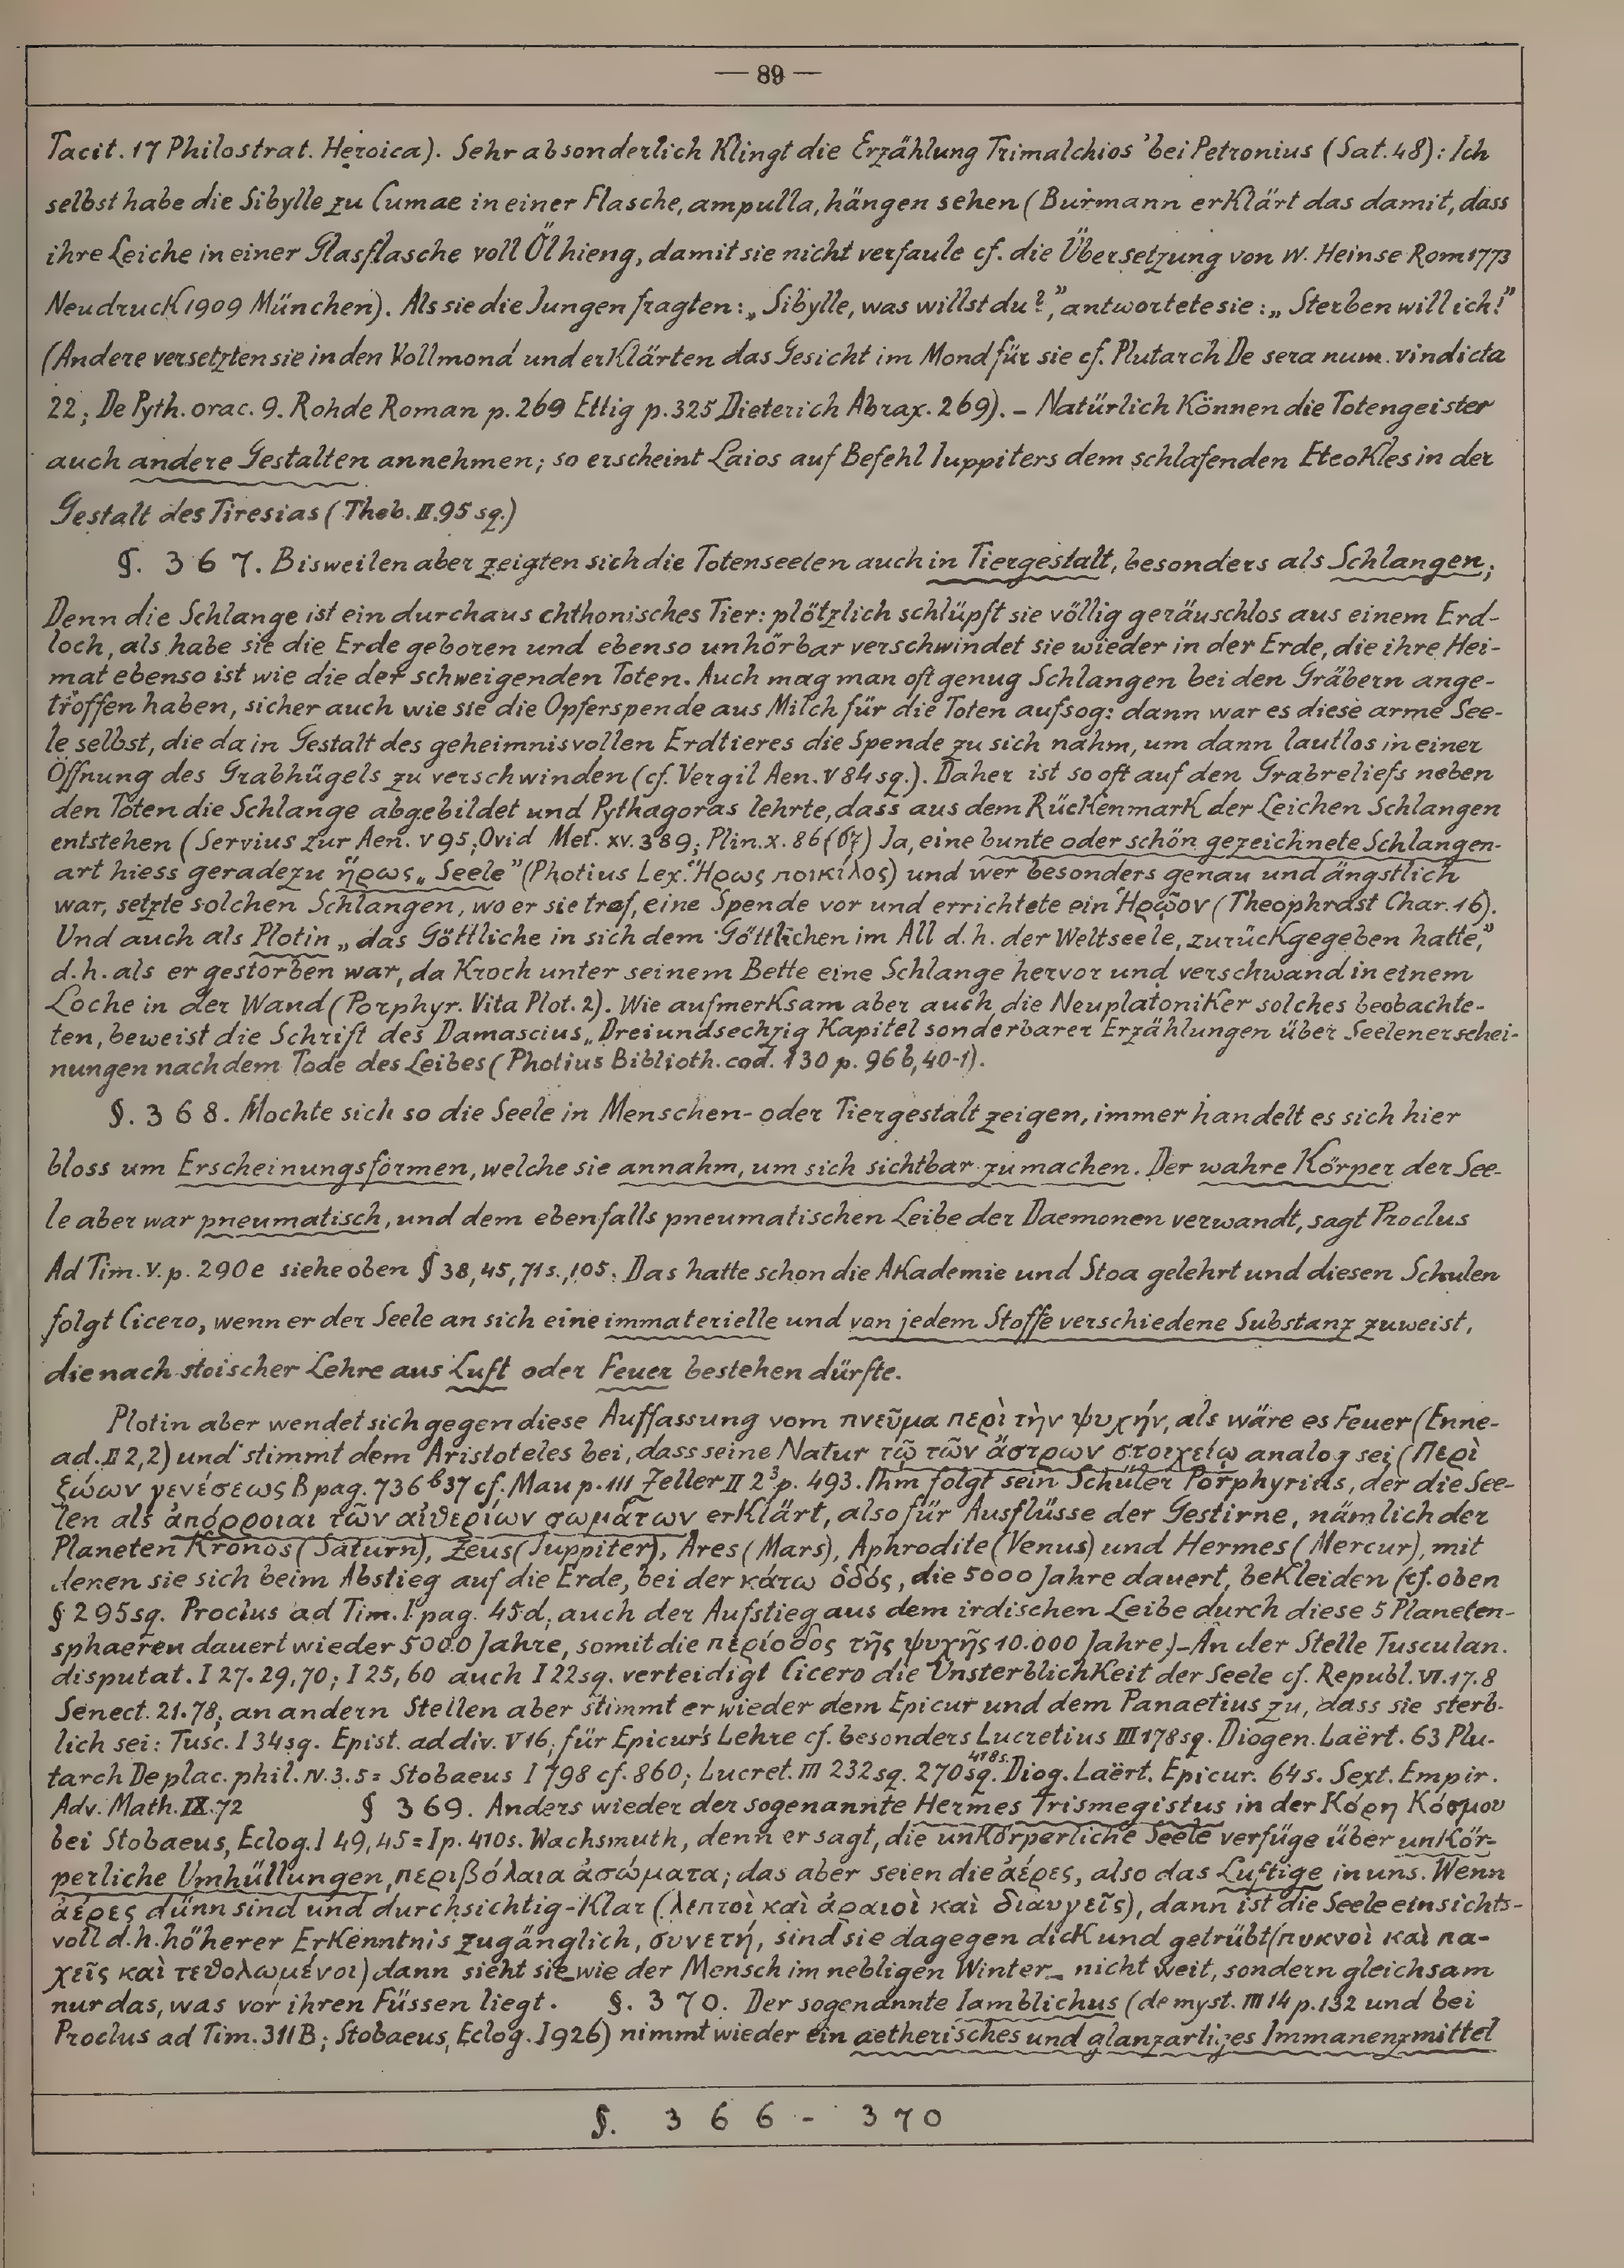 — 89 —
Tacit. 17 Philostrat. Heroica). Sehr absonderlich klingt die Erzählung Trimalchios' bei Petronius (Sat. 48): Ich
selbst habe die Sibylle zu Cumae in einer Flasche, ampulla, hängen sehen (Burmann erklärt das damit, dass
ihre Leiche in einer Glasflasche voll Öl hieng, damit sie nicht verfaule cf. die Übersetzung von W. Heinse Rom 1773
Neudruck 1909 München). Als sie die Jungen fragten: „Sibylle, was willst du?", antwortete sie: „Sterben will ich!"
(Andere versetzten sie in den Vollmond und erklärten das Gesicht im Mond für sie cf. Plutarch De sera num. vindicta
22; De Pyth. orac. 9. Rohde Roman p. 269 Ettig p. 325 Dieterich Abrax. 269). – Natürlich können die Totengeister
auch andere Gestalten annehmen; so erscheint Laios auf Befehl Iuppiters dem schlafenden Eteokles in der
Gestalt des Tiresias (Theb. II. 95 sq.)
§. 367. Bisweilen aber zeigten sich die Totenseelen auch in Tiergestalt, besonders als Schlangen;
Denn die Schlange ist ein durchaus chthonisches Tier: plötzlich schlüpft sie völlig geräuschlos aus einem Erd-
loch, als habe sie die Erde geboren und ebenso unhörbar verschwindet sie wieder in der Erde, die ihre Hei-
mat ebenso ist wie die der schweigenden Toten. Auch mag man oft genug Schlangen bei den Gräbern ange-
troffen haben, sicher auch wie sie die Opferspende aus Milch für die Toten aufsog: dann war es diese arme See-
le selbst, die da in Gestalt des geheimnisvollen Erdtieres die Spende zu sich nahm, um dann lautlos in einer
Öffnung des Grabhügels zu verschwinden (cf. Vergil Aen. V 84 sq.). Daher ist so oft auf den Grabreliefs neben
den Toten die Schlange abgebildet und Pythagoras lehrte, dass aus dem Rückenmark der Leichen Schlangen
entstehen (Servius zur Aen. V 95; Ovid Met. XV. 389; Plin. X. 86 (67) Ja, eine bunte oder schön gezeichnete Schlangen-
art hiess geradezu ἥρως „Seele" (Photius Lex. Ἥρως ποικίλος) und wer besonders genau und ängstlich
war, setzte solchen Schlangen, wo er sie traf, eine Spende vor und errichtete ein Ἡρῷον (Theophrast Char. 16).
Und auch als Plotin „das Göttliche in sich dem Göttlichen im All d.h. der Weltseele, zurückgegeben hatte,"
d.h. als er gestorben war, da kroch unter seinem Bette eine Schlange hervor und verschwand in einem
Loche in der Wand (Porphyr. Vita Plot. 2). Wie aufmerksam aber auch die Neuplatoniker solches beobachte-
ten, beweist die Schrift des Damascius „Dreiundsechzig Kapitel sonderbarer Erzählungen über Seelenerschei-
nungen nach dem Tode des Leibes (Photius Biblioth. cod. 130 p. 96 b, 40-1).
§. 368. Mochte sich so die Seele in Menschen- oder Tiergestalt zeigen, immer handelt es sich hier
bloss um Erscheinungsformen, welche sie annahm, um sich sichtbar zu machen. Der wahre Körper der See-
le aber war pneumatisch, und dem ebenfalls pneumatischen Leibe der Daemonen verwandt, sagt Proclus
Ad Tim. V. p. 290 e siehe oben § 38, 45, 71 s., 105. Das hatte schon die Akademie und Stoa gelehrt und diesen Schulen
folgt Cicero, wenn er der Seele an sich eine immaterielle und von jedem Stoffe verschiedene Substanz zuweist,
die nach stoischer Lehre aus Luft oder Feuer bestehen dürfte.
Plotin aber wendet sich gegen diese Auffassung vom πνεῦμα περὶ τὴν ψυχήν, als wäre es Feuer (Enne-
ad. II 2,2) und stimmt dem Aristoteles bei, dass seine Natur τῷ τῶν ἄστρων στοιχείῳ analog sei (Περὶ
ζώων γενέσεως B pag. 736 b 37 cf. Mau p. 111 Zeller II 2³ p. 493. Ihm folgt sein Schüler Porphyrius, der die See-
len als ἀπόρροιαι τῶν αἰθερίων σωμάτων erklärt, also für Ausflüsse der Gestirne, nämlich der
Planeten Kronos (Saturn), Zeus (Juppiter), Ares (Mars), Aphrodite (Venus) und Hermes (Mercur), mit
denen sie sich beim Abstieg auf die Erde, bei der κάτω ὁδός, die 5000 Jahre dauert, bekleiden (cf. oben
§ 295 sq. Proclus ad Tim. I pag. 45 d; auch der Aufstieg aus dem irdischen Leibe durch diese 5 Planeten-
sphaeren dauert wieder 5000 Jahre, somit die περίοδος τῆς ψυχῆς 10.000 Jahre.) – An der Stelle Tusculan.
disputat. I 27. 29, 70; I 25, 60 auch I 22 sq. verteidigt Cicero die Unsterblichkeit der Seele cf. Republ. VI. 17. 8
Senect. 21. 78; an andern Stellen aber stimmt er wieder dem Epicur und dem Panaetius zu, dass sie sterb-
lich sei: Tusc. I 34 sq. Epist. ad div. V 16; für Epicur's Lehre cf. besonders Lucretius III 178 sq. Diogen. Laërt. 63 Plu-
tarch De plac. phil. IV. 3. 5 = Stobaeus I 798 cf. 860; Lucret. III 232 sq. 270 sq. 418 s. Diog. Laërt. Epicur. 64 s. Sext. Empir.
Adv. Math. IX. 72 § 369. Anders wieder der sogenannte Hermes Trismegistus in der Κόρη Κόσμου
bei Stobaeus, Eclog. I 49, 45 = I p. 410 s. Wachsmuth, denn er sagt, die unkörperliche Seele verfüge über unkör-
perliche Umhüllungen, περιβόλαια ἀσώματα; das aber seien die ἀέρες, also das Luftige in uns. Wenn
ἀέρες dünn sind und durchsichtig-klar (λεπτοὶ καὶ ἀραιοὶ καὶ διαυγεῖς), dann ist die Seele einsichts-
voll d.h. höherer Erkenntnis zugänglich, συνετή, sind sie dagegen dick und getrübt (πυκνοὶ καὶ πα-
χεῖς καὶ τεθολωμένοι) dann sieht sie – wie der Mensch im nebligen Winter – nicht weit, sondern gleichsam
nur das, was vor ihren Füssen liegt. §. 370. Der sogenannte Iamblichus (de myst. III 14 p. 132 und bei
Proclus ad Tim. 311 B; Stobaeus, Eclog. I 926) nimmt wieder ein aetherisches und glanzartiges Immanenzmittel
§. 366 - 370